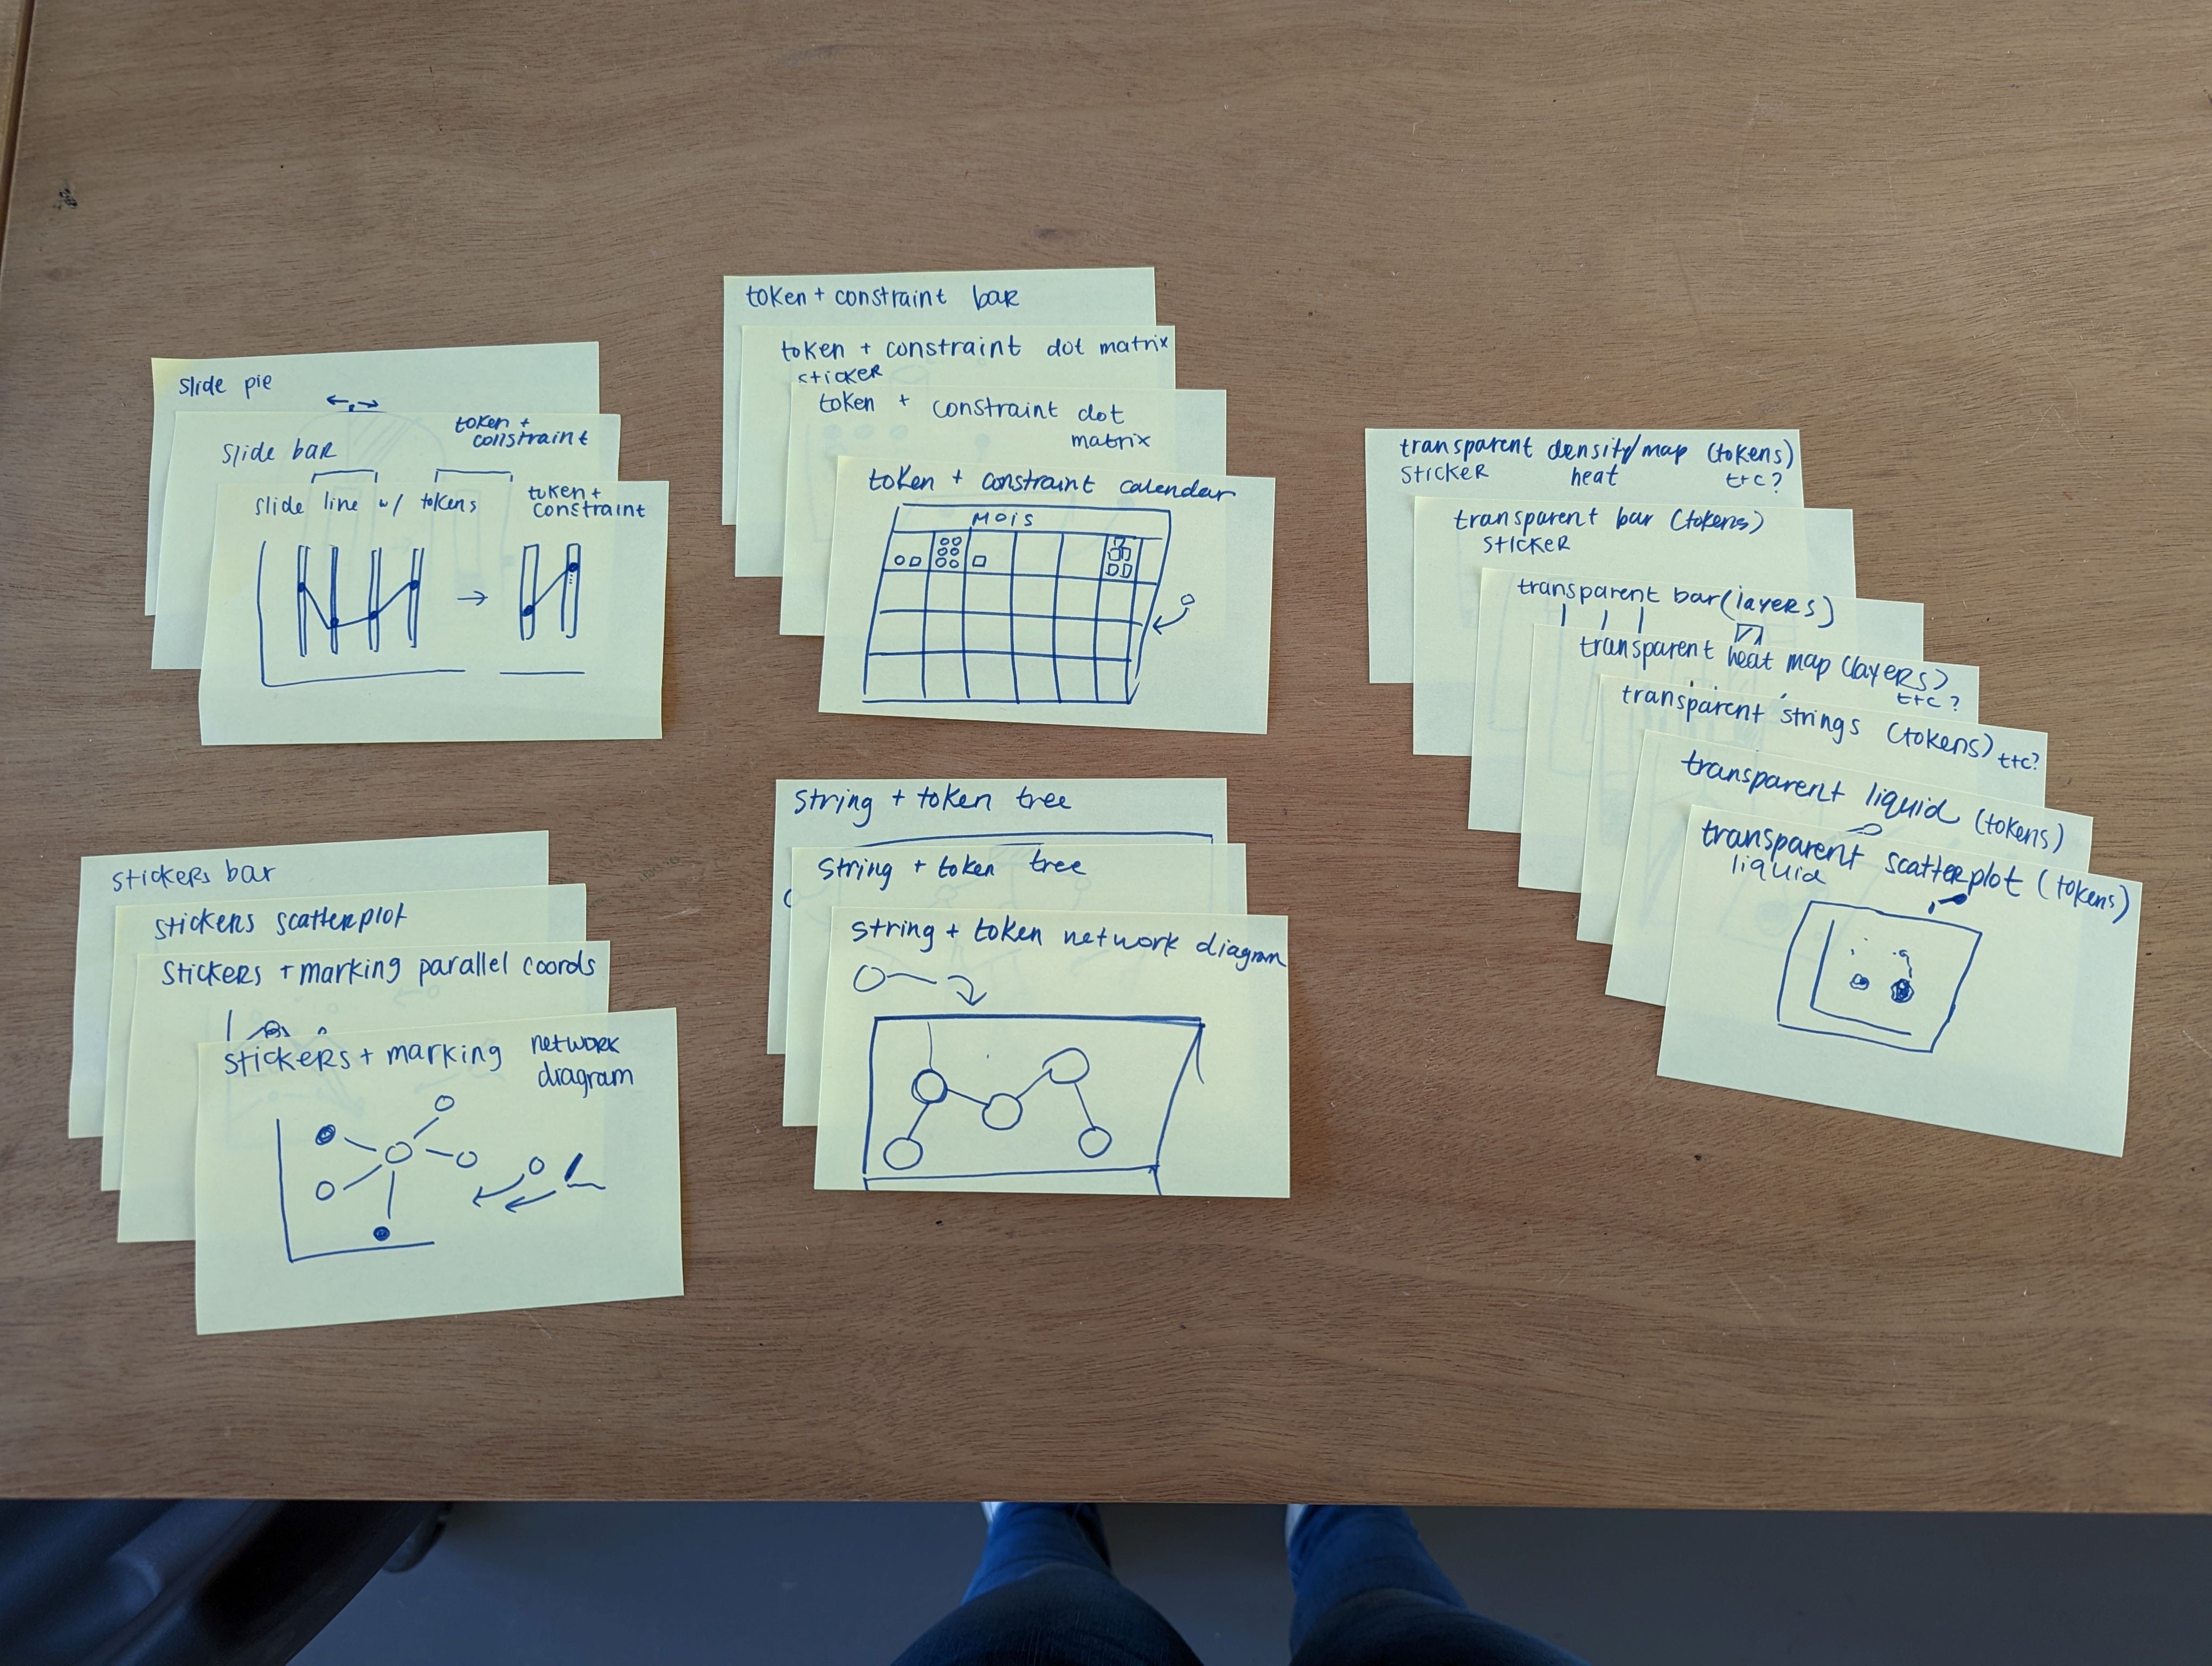 slide pie
slide bar
token +
constraint
slide line w/ tokens
token +
constraint
token + constraint bar
token + constraint dot matrix
sticker
token + constraint dot
matrix
token + constraint calendar
MOIS
transparent density/map (tokens)
sticker heat t+c?
transparent bar (tokens)
sticker
transparent bar (layers)
transparent heat map (layers)
t+c?
transparent strings (tokens) t+c?
transparent liquid (tokens)
transparent scatterplot (tokens)
liquid
stickers bar
stickers scatterplot
stickers + marking parallel coords
stickers + marking network
diagram
string + token tree
string + token tree
string + token network diagram